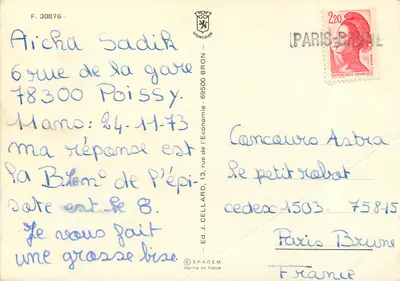 F. 30876
Aicha Sadik
6 rue de la gare
78300 Poissy.
11 ans: 24-11-73
ma réponse est
la B. Le n° de l'épi-
sote est le 8.
Je vous fait
une grosse bise
LYONCOLOR
Ed. J. CELLARD, 13, rue de l'Economie - 69500 BRON
© SPADEM
Imprimé en France
2,20
REPUBLIQUE FRANÇAISE
PARIS-BRUNE
Concours Astra
le petit robot
cedex 1503 75815
Paris Brune
France